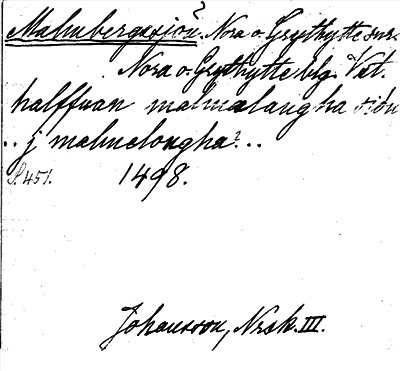 Malmbergasjön? Nora o. Grythytte snr.
Nora o. Grythytte blg. Vät.
halffuan malmalangha siön
.. j malmelongha? ..
S. 451. 1498.
Johansson, Nrsk. III.